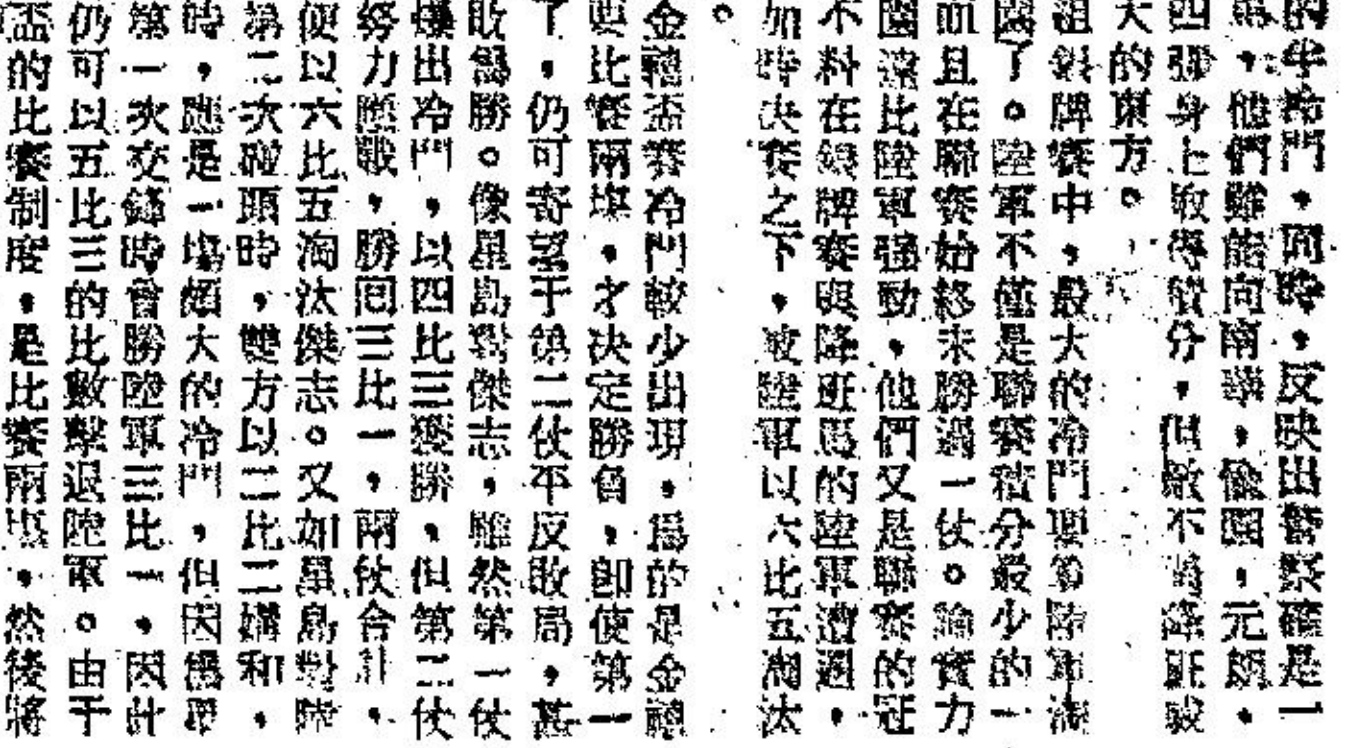 的半冷門。同時,反映出警察確是一
馬,他們雖能向南華,愉園,元朗。
四彈身上取得積分,但敵不過降班
大的東方。
組銀牌賽中,最大的冷門要算陸軍淘
園了。陸軍不僅是聯賽積分最少的一
而且在聯賽始終未勝過一仗。論實力
園遠比陸軍强勁,他們又是聯賽的冠
不料在銀牌賽與降班馬的陸軍遭遇,
加時決賽之下,被陸軍以六比五淘汰
。
金禧盃賽冷門較少出現,爲的是金禧
要比賽兩塲,才决定勝負,卽使第一
了,仍可寄望于第二仗平反敗局,甚
敗爲勝。像星島對傑志,雖然第一仗
爆出冷門,以四比三獲勝,但第二仗
努力應戰,勝囘三比一,兩仗合計,
便以六比五淘汰傑志。又如星島對陸
第二次碰頭時,雙方以二比二媾和,
時,應是一塲頗大的冷門,但因爲星
第一次交鋒時曾勝陸軍三比一,因此
仍可以五比三的比數擊退陸軍。由于
盃的比賽制度,是比賽兩塲,然後將